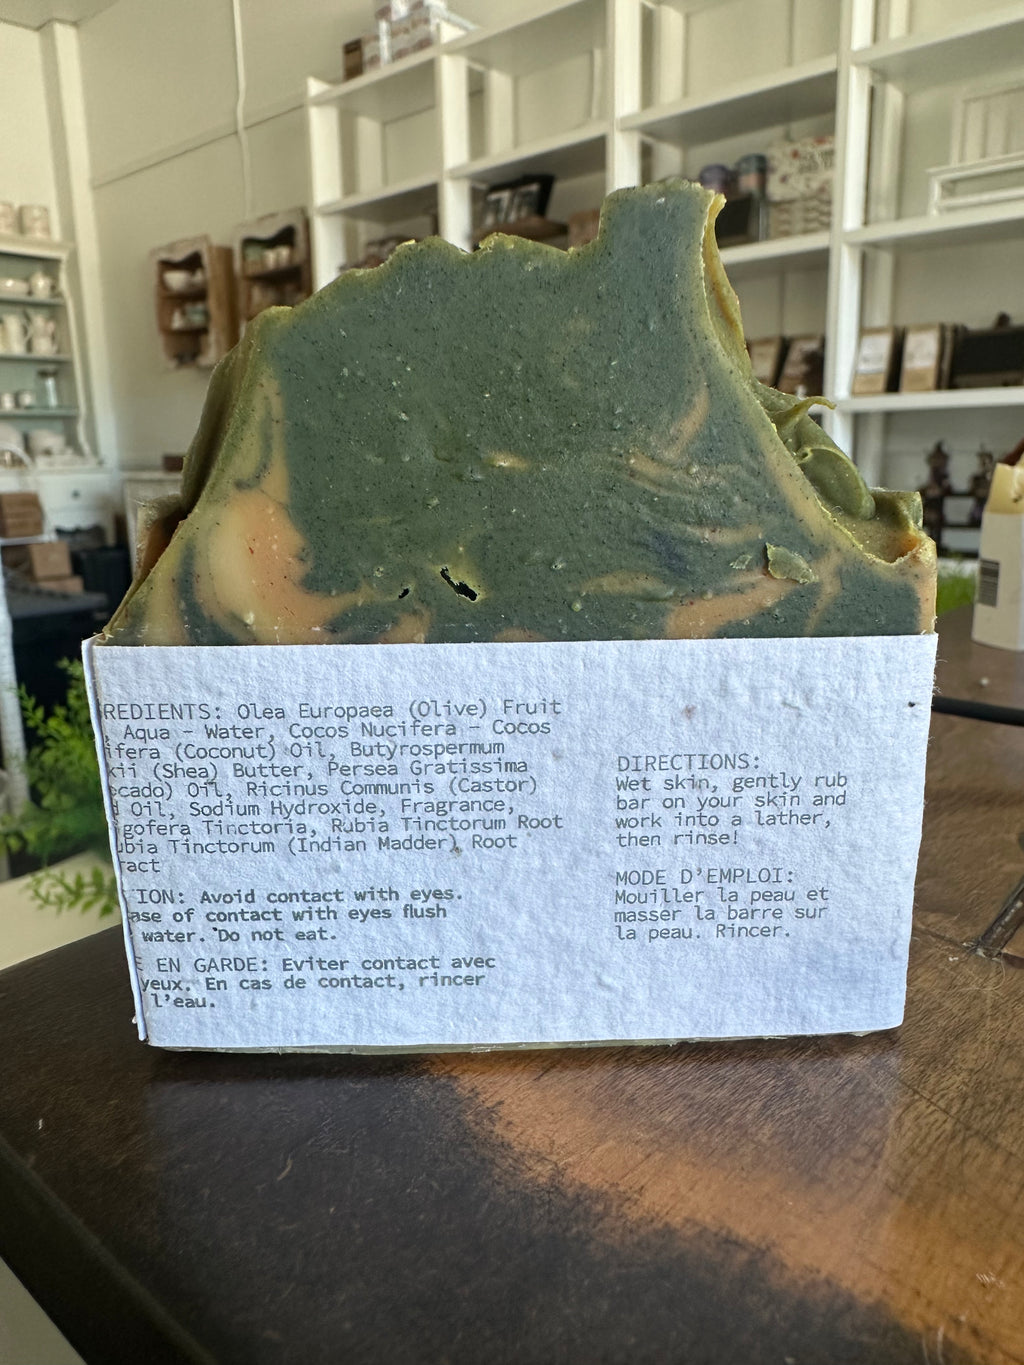 REDIENTS: Olea Europaea (Olive) Fruit
, Aqua - Water, Cocos Nucifera - Cocos
ifera (Coconut) Oil, Butyrospermum
kii (Shea) Butter, Persea Gratissima
cado) Oil, Ricinus Communis (Castor)
d Oil, Sodium Hydroxide, Fragrance,
gofera Tinctoria, Rubia Tinctorum Root
ubia Tinctorum (Indian Madder) Root
ract
TION: Avoid contact with eyes.
ase of contact with eyes flush
water. Do not eat.
E EN GARDE: Eviter contact avec
yeux. En cas de contact, rincer
l'eau.
DIRECTIONS:
Wet skin, gently rub
bar on your skin and
work into a lather,
then rinse!
MODE D'EMPLOI:
Mouiller la peau et
masser la barre sur
la peau. Rincer.